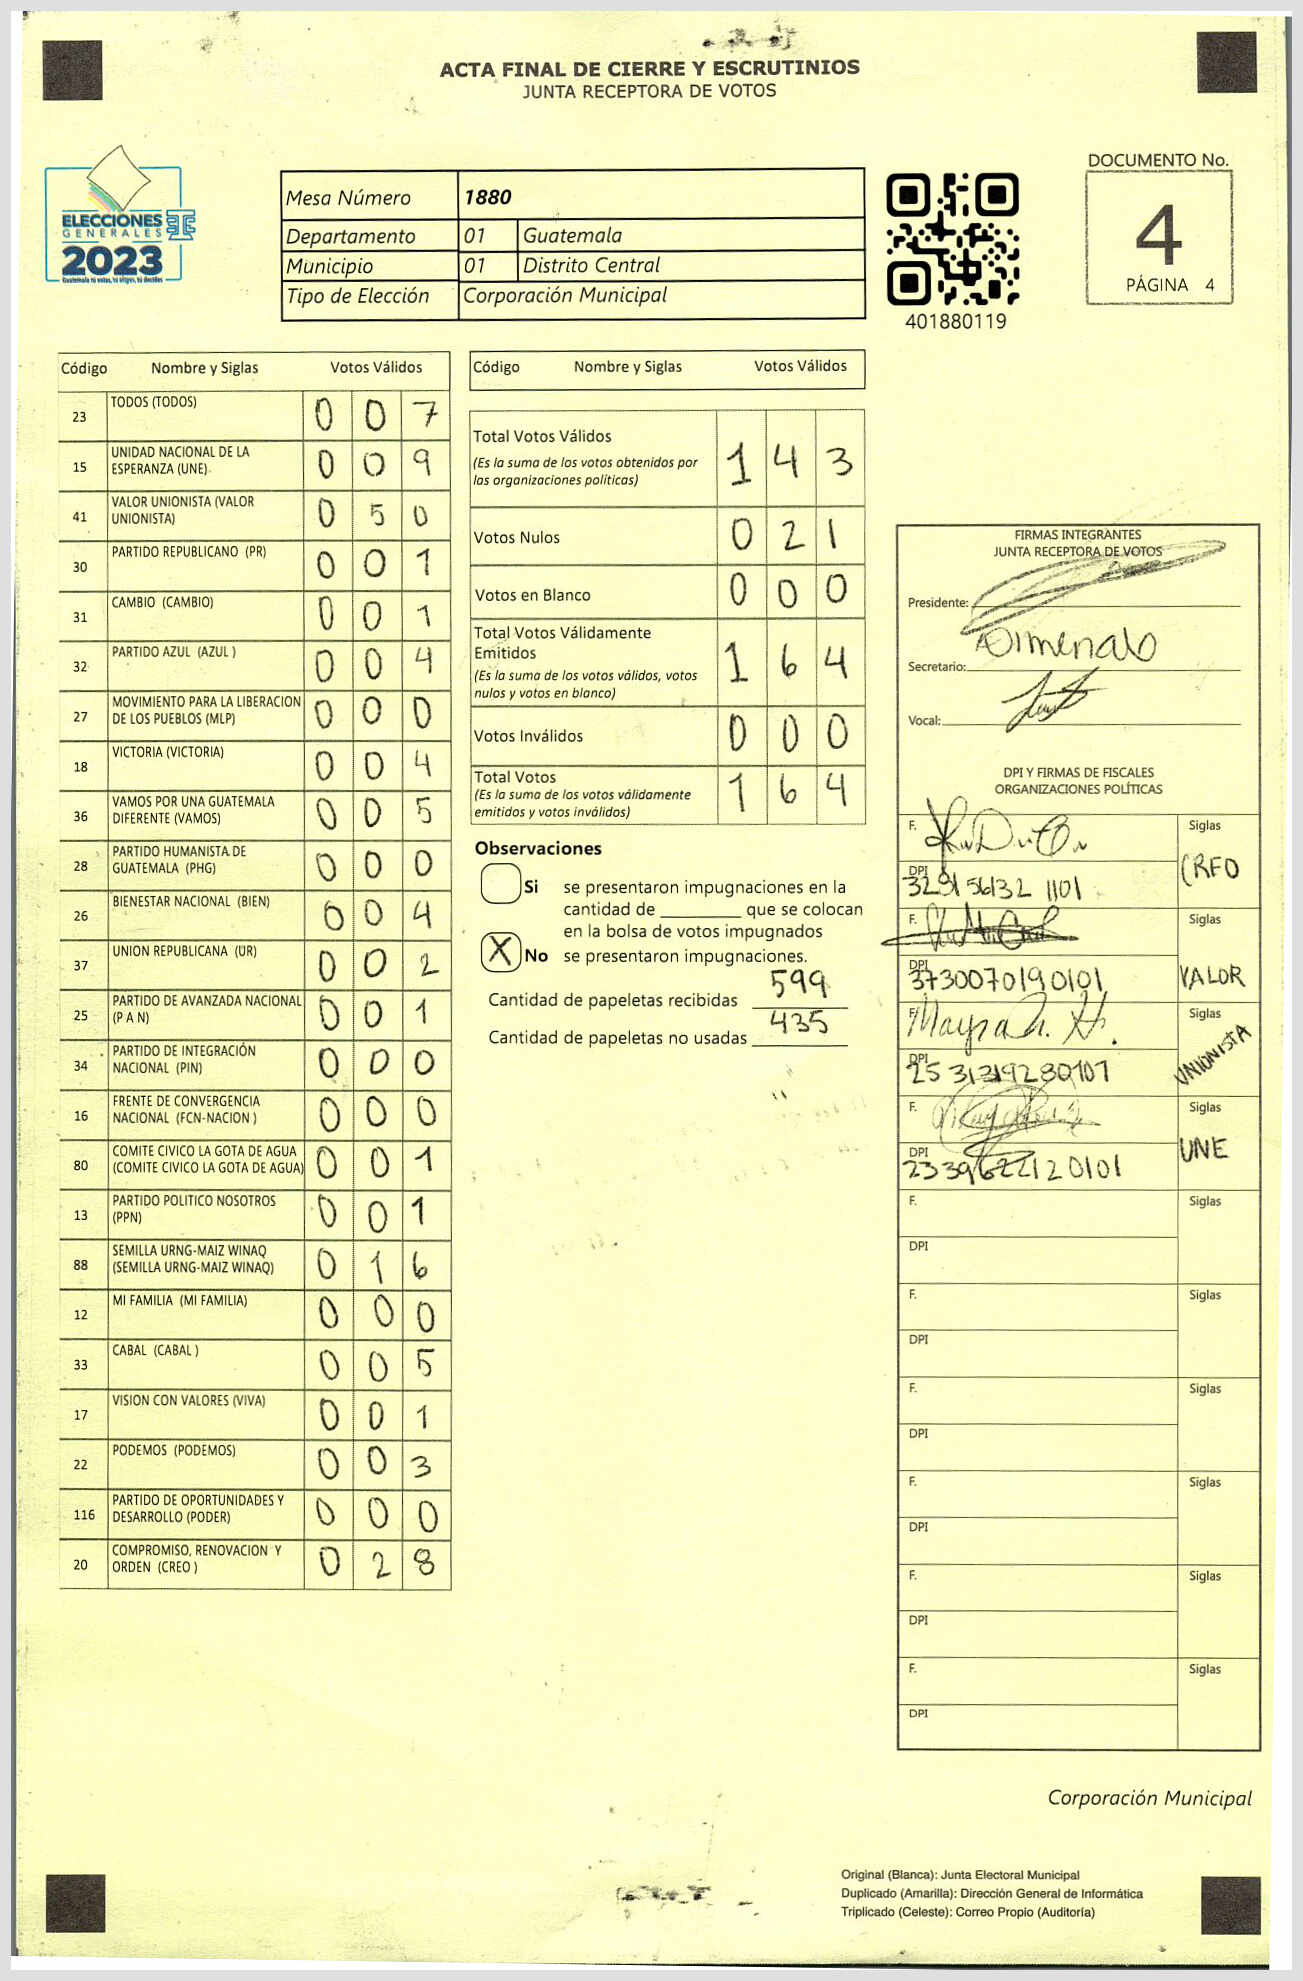 ACTA FINAL DE CIERRE Y ESCRUTINIOS
JUNTA RECEPTORA DE VOTOS
ELECCIONES
GENERALES
2023
Guatemala tú votas, tú eliges, tú decides
Mesa Número 1880
Departamento 01 Guatemala
Municipio 01 Distrito Central
Tipo de Elección Corporación Municipal
401880119
DOCUMENTO No.
4
PÁGINA 4
Código Nombre y Siglas Votos Válidos
23 TODOS (TODOS) 0 0 7
15 UNIDAD NACIONAL DE LA
ESPERANZA (UNE) 0 0 9
41 VALOR UNIONISTA (VALOR
UNIONISTA) 0 5 0
30 PARTIDO REPUBLICANO (PR) 0 0 1
31 CAMBIO (CAMBIO) 0 0 1
32 PARTIDO AZUL (AZUL ) 0 0 4
27 MOVIMIENTO PARA LA LIBERACION
DE LOS PUEBLOS (MLP) 0 0 0
18 VICTORIA (VICTORIA) 0 0 4
36 VAMOS POR UNA GUATEMALA
DIFERENTE (VAMOS) 0 0 5
28 PARTIDO HUMANISTA DE
GUATEMALA (PHG) 0 0 0
26 BIENESTAR NACIONAL (BIEN) 0 0 4
37 UNION REPUBLICANA (UR) 0 0 2
25 PARTIDO DE AVANZADA NACIONAL
(P A N) 0 0 1
34 PARTIDO DE INTEGRACIÓN
NACIONAL (PIN) 0 0 0
16 FRENTE DE CONVERGENCIA
NACIONAL (FCN-NACION ) 0 0 0
80 COMITE CIVICO LA GOTA DE AGUA
(COMITE CIVICO LA GOTA DE AGUA) 0 0 1
13 PARTIDO POLITICO NOSOTROS
(PPN) 0 0 1
88 SEMILLA URNG-MAIZ WINAQ
(SEMILLA URNG-MAIZ WINAQ) 0 1 6
12 MI FAMILIA (MI FAMILIA) 0 0 0
33 CABAL (CABAL ) 0 0 5
17 VISION CON VALORES (VIVA) 0 0 1
22 PODEMOS (PODEMOS) 0 0 3
116 PARTIDO DE OPORTUNIDADES Y
DESARROLLO (PODER) 0 0 0
20 COMPROMISO, RENOVACION Y
ORDEN (CREO ) 0 2 8
Código Nombre y Siglas Votos Válidos
Total Votos Válidos
(Es la suma de los votos obtenidos por
las organizaciones políticas) 1 4 3
Votos Nulos 0 2 1
Votos en Blanco 0 0 0
Total Votos Válidamente
Emitidos
(Es la suma de los votos válidos, votos
nulos y votos en blanco) 1 6 4
Votos Inválidos 0 0 0
Total Votos
(Es la suma de los votos válidamente
emitidos y votos inválidos) 1 6 4
Observaciones
Si se presentaron impugnaciones en la
cantidad de ________ que se colocan
en la bolsa de votos impugnados
X No se presentaron impugnaciones.
Cantidad de papeletas recibidas 599
Cantidad de papeletas no usadas 435
FIRMAS INTEGRANTES
JUNTA RECEPTORA DE VOTOS
Presidente:
Secretario:
Vocal:
DPI Y FIRMAS DE FISCALES
ORGANIZACIONES POLÍTICAS
F. Siglas
DPI CREO
F. Siglas
DPI 3730070190101 VALOR
F. Siglas
DPI UNIONISTA
F. Siglas
DPI UNE
F. Siglas
DPI
F. Siglas
DPI
F. Siglas
DPI
F. Siglas
DPI
F. Siglas
DPI
F. Siglas
DPI
Corporación Municipal
Original (Blanca): Junta Electoral Municipal
Duplicado (Amarilla): Dirección General de Informática
Triplicado (Celeste): Correo Propio (Auditoría)